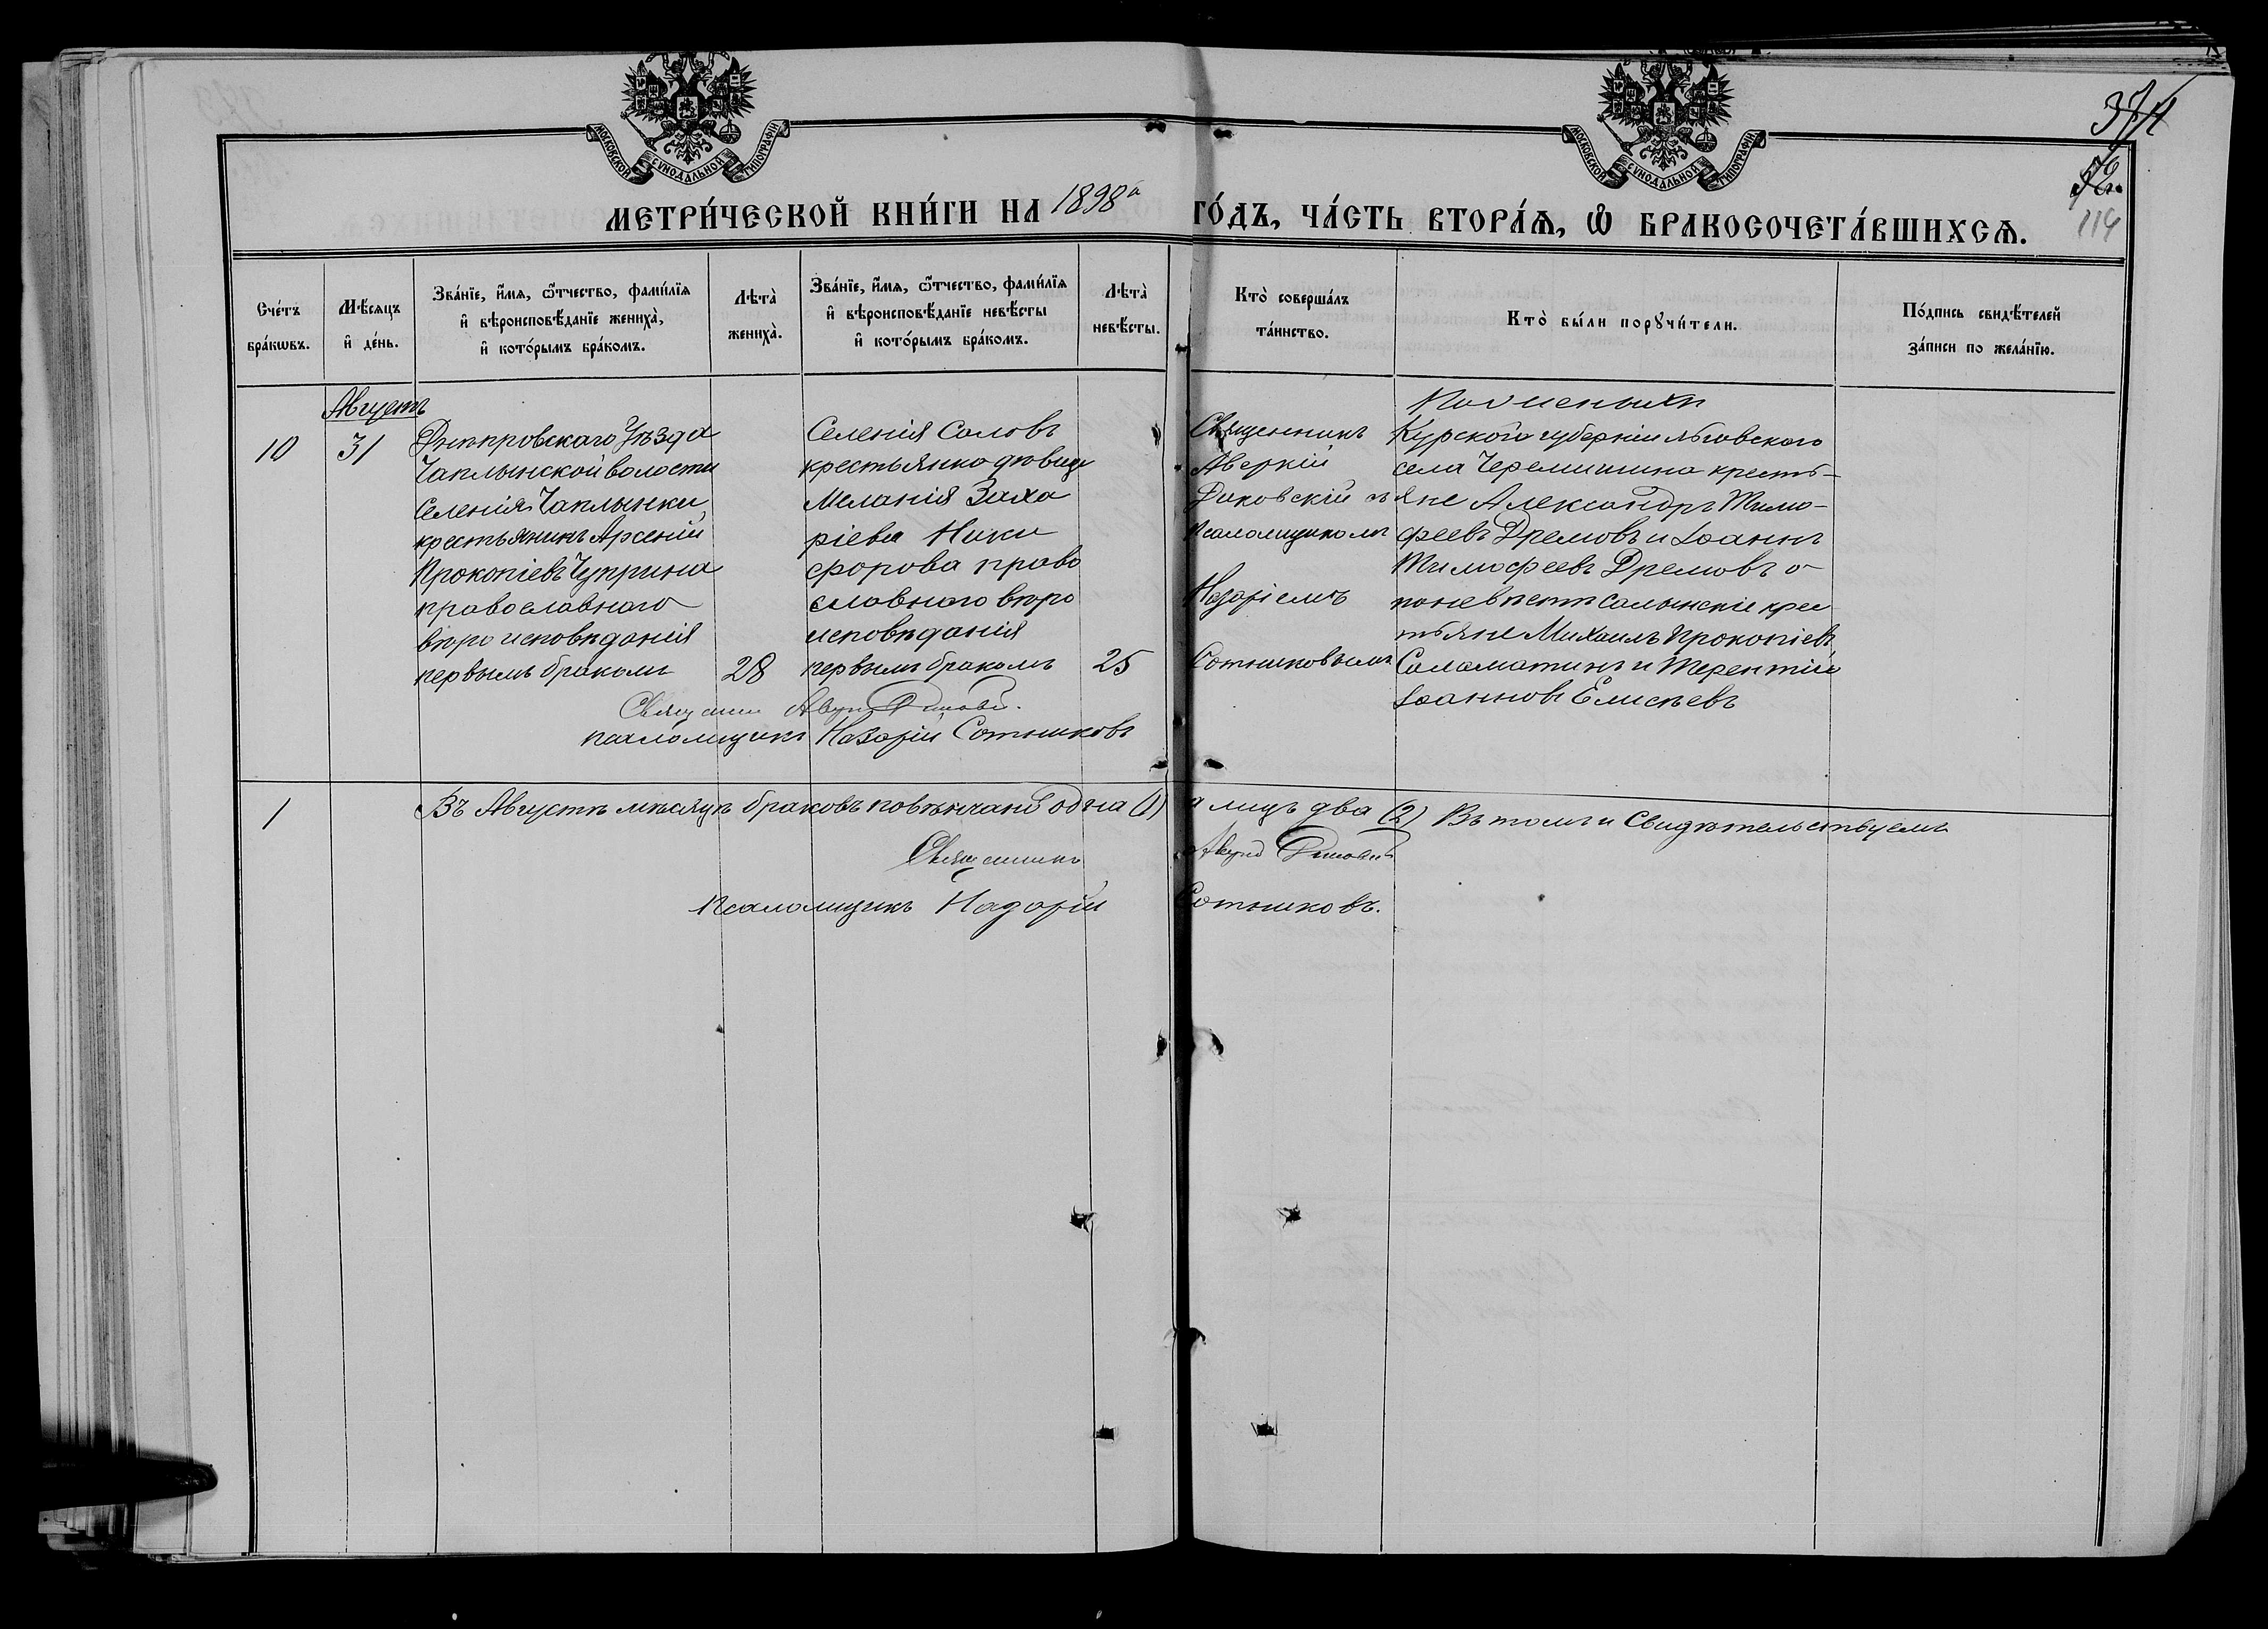 МОСКОВСКОЙ СѴНОДАЛЬНОЙ ТИПОГРАФІИ
МОСКОВСКОЙ СѴНОДАЛЬНОЙ ТИПОГРАФІИ
114
МЕТРИ́ЧЕСКОЙ КНИ́ГИ НА 1898й ГО́ДЪ, ЧА́СТЬ ВТОРА́Ѧ, Ѡ҆ БРАКОСОЧЕТА́ВШИХСѦ.
Сче́тъ
бра́кѡвъ.
Мѣ́сяцъ
и҆ де́нь.
Зва́нїе, и҆́мѧ, ѻ҆́тчество, фами́лїѧ
и҆ вѣроисповѣ́данїе жениха̀,
и҆ кото́рымъ бра́комъ.
Лѣта̀
жениха̀.
Зва́нїе, и҆́мѧ, ѻ҆́тчество, фами́лїѧ
и҆ вѣроисповѣ́данїе невѣ́сты
и҆ кото́рымъ бра́комъ.
Лѣта̀
невѣ́сты.
Кто̀ соверша́лъ
та́инство.
Кто̀ бы́ли порꙋчи́тели.
По́дпись свидѣ́телей
за́писи по жела́нїю.
Августъ
10
31
Днѣпровскаго Уѣзда
Чаплынской волости
Селенія Чаплынки
крестьянинъ Арсеній
Прокопіевъ Чуприна
православнаго
вѣроисповѣданія
первымъ бракомъ
28
Селенія Саловъ
крестьянка дѣвица
Меланія Заха
ріева Ники
форова право
славнаго вѣро
исповѣданія
первымъ бракомъ
25
Священникъ
Аверкій
съ
Псаломщикомъ
Назаріемъ
Сотниковымъ
По женихѣ
Курской губерніи Льговскаго
села Черемишина кресть-
яне Александръ Тимо-
феевъ Дремовъ и Іоаннъ
Тимофеевъ Дремовъ а
по невѣстѣ салынскіе крес
тьяне Михаилъ Прокопіевъ
Саламатинъ и Терентій
Іоанновъ Елисѣевъ
Священникъ
псаломщикъ Назарій Сотниковъ
1
Въ Августѣ мѣсяцѣ браковъ повѣнчано одна (1) а лицъ два (2) Въ томъ и свидѣтельствуемъ
Священникъ
Псаломщикъ Назарій Сотниковъ.